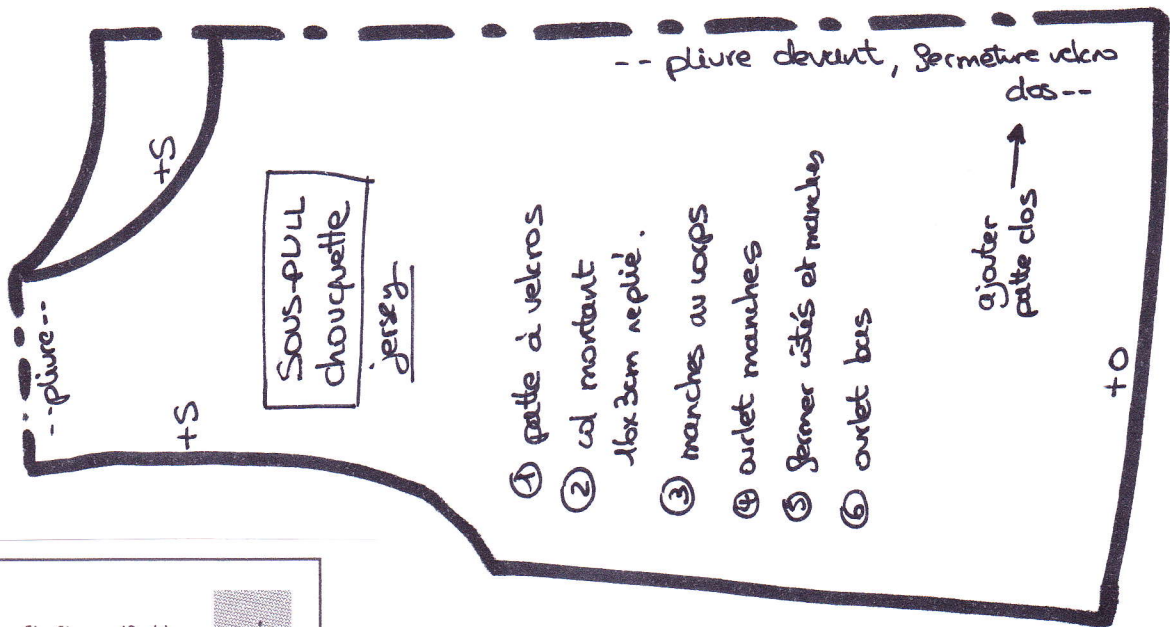 -- pliure devant, fermeture velcro
dos --
+S
--pliure--
+S
SOUS-PULL
chouquette
jersey
① patte à velcros
② col montant
16x3cm replié.
③ manches au corps
④ ourlet manches
⑤ fermer côtés et manches
⑥ ourlet bas
ajouter
patte dos
+O